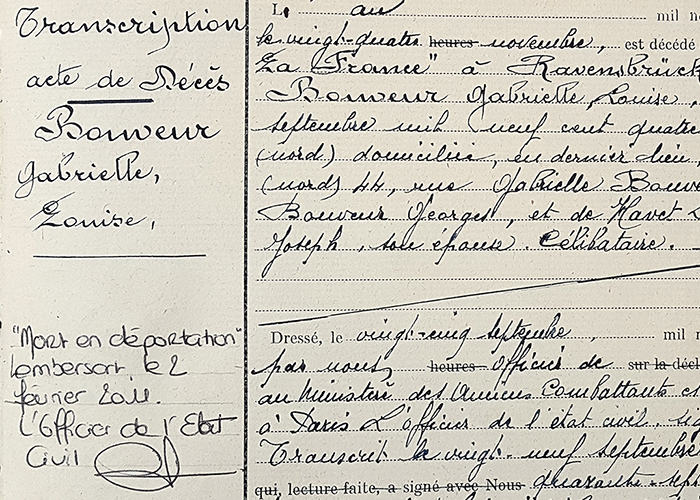 Transcription
acte de Décès
Bouveur
Gabrielle,
Louise,
"Mort en déportation"
Lambersart, le 2
février 2011.
L'Officier de l'Etat
Civil
L, an mil no
le vingt-quatre heures novembre, est décédé
La France" à Ravensbrück
Bouveur Gabrielle, Louise,
septembre mil neuf cent quatre
(nord) domiciliée, en dernier lieu
(nord) 44, rue Gabrielle Bouve
Bouveur Georges, et de Havet
Joseph, son épouse. Célibataire.
Dressé, le vingt-cinq septembre, mil n
par nous, heures officier de sur la décl
au Ministère des Anciens Combattants e
à Paris L'officier de l'état civil.
Transcrit le vingt-neuf septembre
qui, lecture faite, a signé avec Nous quarante-sep